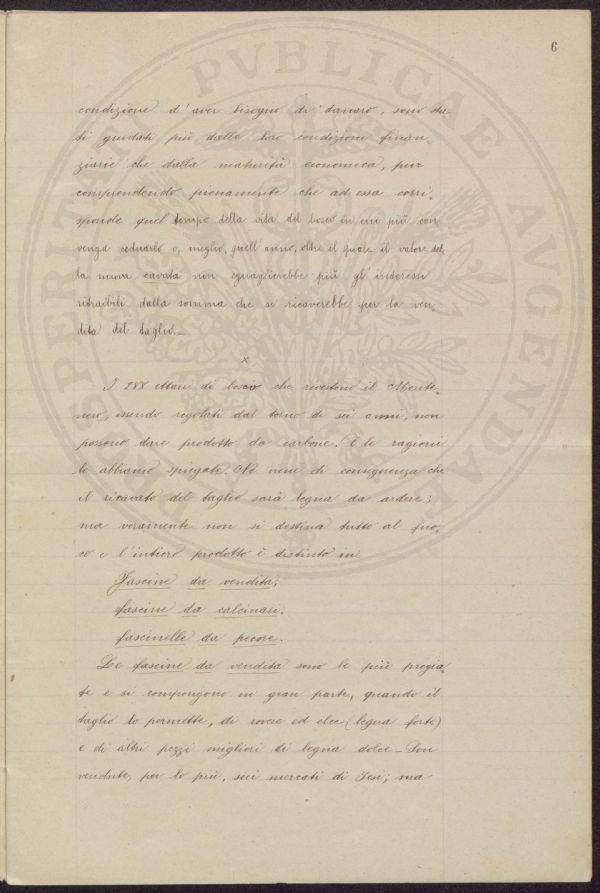 6
condizione d'aver bisogno di danaro, sono sta=
ti guidati più dalle loro condizioni finan=
ziarie che dalla maturità economica, pur
comprendendo pienamente che ad essa corri=
sponde quel tempo della vita del bosco in cui più con
venga ceduarlo o, meglio, quell'anno, oltre il quale il valore del
la nuova cavata non eguaglierebbe più gl'interessi
ritraibili dalla somma che si ricaverebbe per la ven=
dita del taglio._
x
I 288 ettari di bosco che rivestono il Monte=
nero, essendo regolati dal turno di sei anni, non
possono dare prodotto da carbone. E le ragioni
le abbiamo spiegate. Ne viene di conseguenza che
il ricavato del taglio sarà legna da ardere;
ma veramente non si destina tutto al fuo=
co e l'intiero prodotto è distinto in
Fascine da vendita;
fascine da calcinari.
fascinelle da pecore.
Le fascine da vendita sono le più pregia=
te e si compongono in gran parte, quando il
taglio lo permette, di rovere ed elce (legna forte)
e di altri pezzi migliori di legna dolce_ Son
vendute, per lo più, sui mercati di Jesi; ma
PVBLICAE AVGENDAE PROSPERITATI